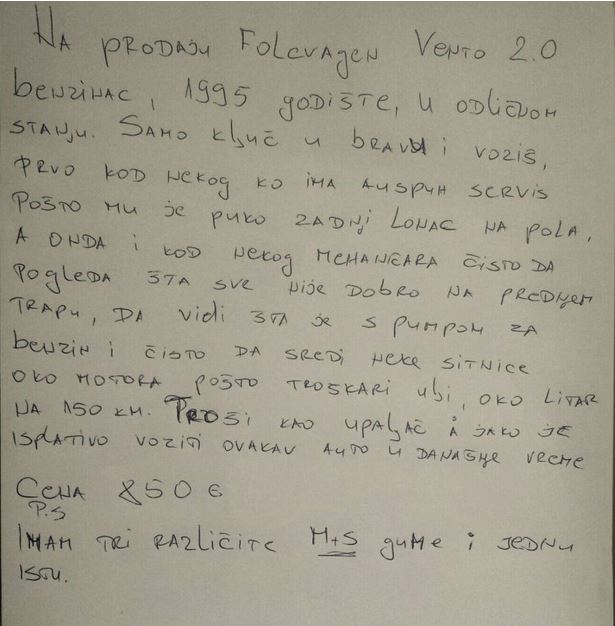 Na prodaju Folcvagen Vento 2.0
benzinac, 1995 godište, u odličnom
stanju. Samo ključ u bravu i voziš,
prvo kod nekog ko ima auspuh servis
pošto mu je puko zadnji lonac na pola,
a onda i kod nekog mehaničara čisto da
pogleda šta sve nije dobro na prednjem
trapu, da vidi šta je s pumpom za
benzin i čisto da sredi neke sitnice
oko motora pošto troskari ubi, oko litar
na 150 km. Troši kao upaljač a jako je
isplativo voziti ovakav auto u današnje vreme
Cena 850 €
P.S
Imam tri različite M+S gume i jednu
istu.